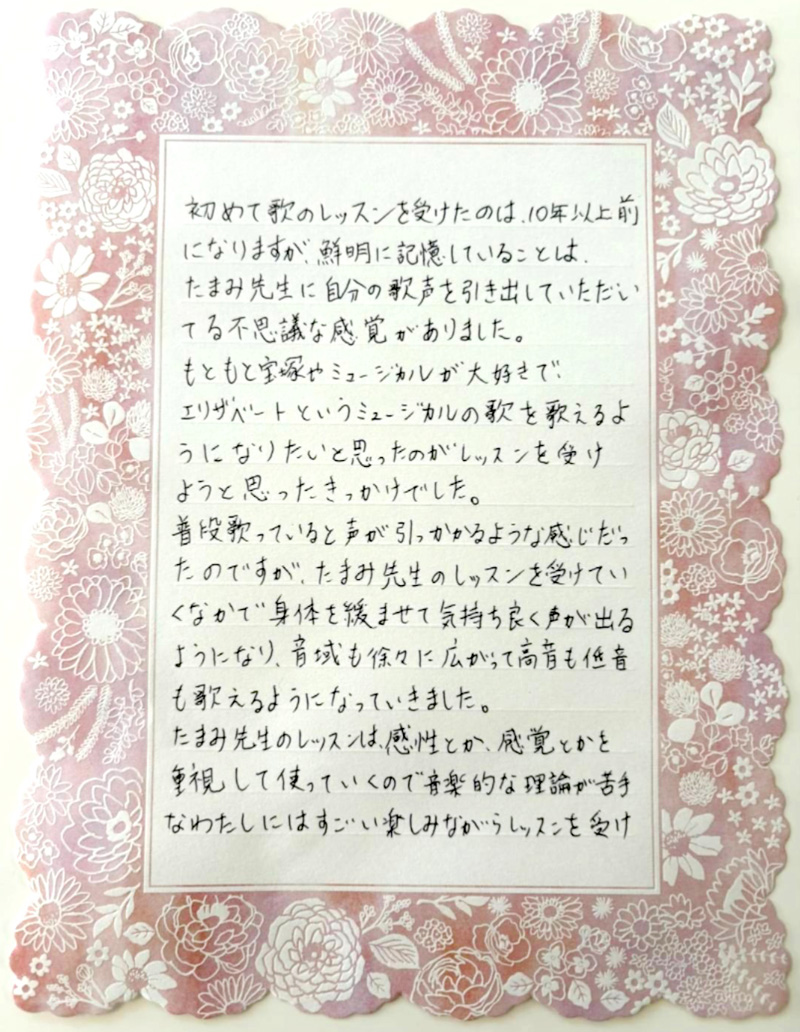 初めて歌のレッスンを受けたのは、10年以上前
になりますが、鮮明に記憶していることは、
たまみ先生に自分の歌声を引き出していただい
てる不思議な感覚がありました。
もともと宝塚やミュージカルが大好きで、
エリザベートというミュージカルの歌を歌えるよ
うになりたいと思ったのがレッスンを受け
ようと思ったきっかけでした。
普段歌っていると声が引っかかるような感じだっ
たのですが、たまみ先生のレッスンを受けてい
くなかで身体を緩ませて気持ち良く声が出る
ようになり、音域も徐々に広がって高音も低音
も歌えるようになっていきました。
たまみ先生のレッスンは、感性とか、感覚とかを
重視して使っていくので音楽的な理論が苦手
なわたしにはすごい楽しみながらレッスンを受け